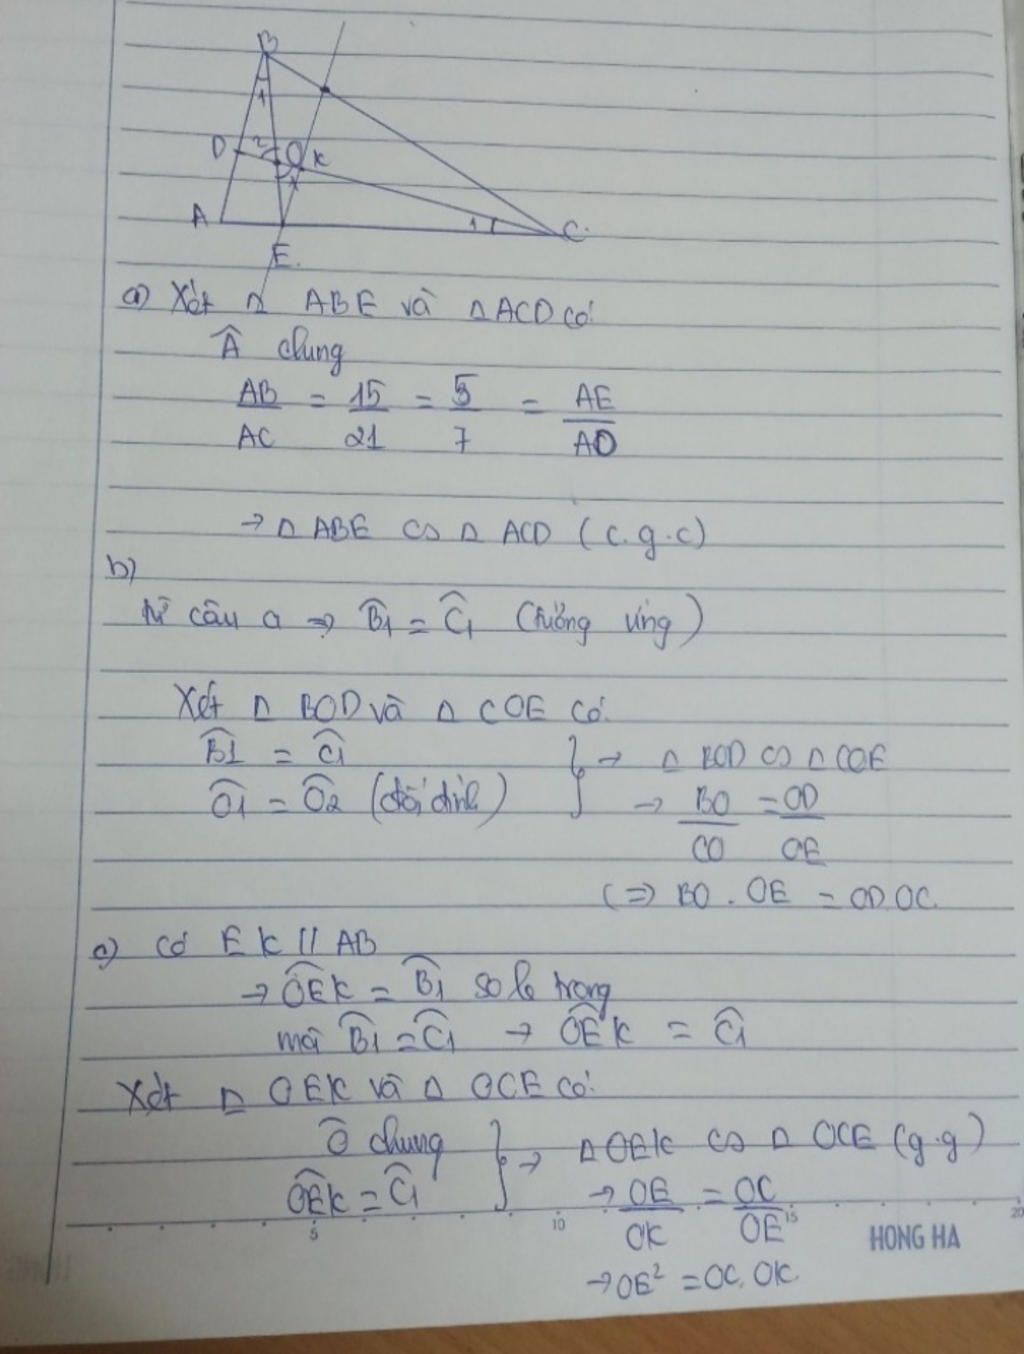 B
1
D 2 O K
1
A 1 C
E
a) Xét Δ ABE và Δ ACD có:
Â chung
AB/AC = 15/21 = 5/7 = AE/AD
→ Δ ABE ∽ Δ ACD (c.g.c)
b)
từ câu a ⇒ B̂1 = Ĉ1 (tương ứng)
Xét Δ BOD và Δ COE có:
B̂1 = Ĉ1 } → Δ BOD ∽ Δ COE
Ô1 = Ô2 (đối đỉnh) → BO/CO = OD/OE
(⇒ BO . OE = OD.OC.
c) Có EK // AB
→ OÊK = B̂1 so le trong
mà B̂1 = Ĉ1 → OÊK = Ĉ1
Xét Δ OEK và Δ OCE có:
Ô chung } → Δ OEK ∽ Δ OCE (g.g)
OÊK = Ĉ1 → OE/OK = OC/OE
5 10 15 20
HONG HA
→ OE² = OC.OK